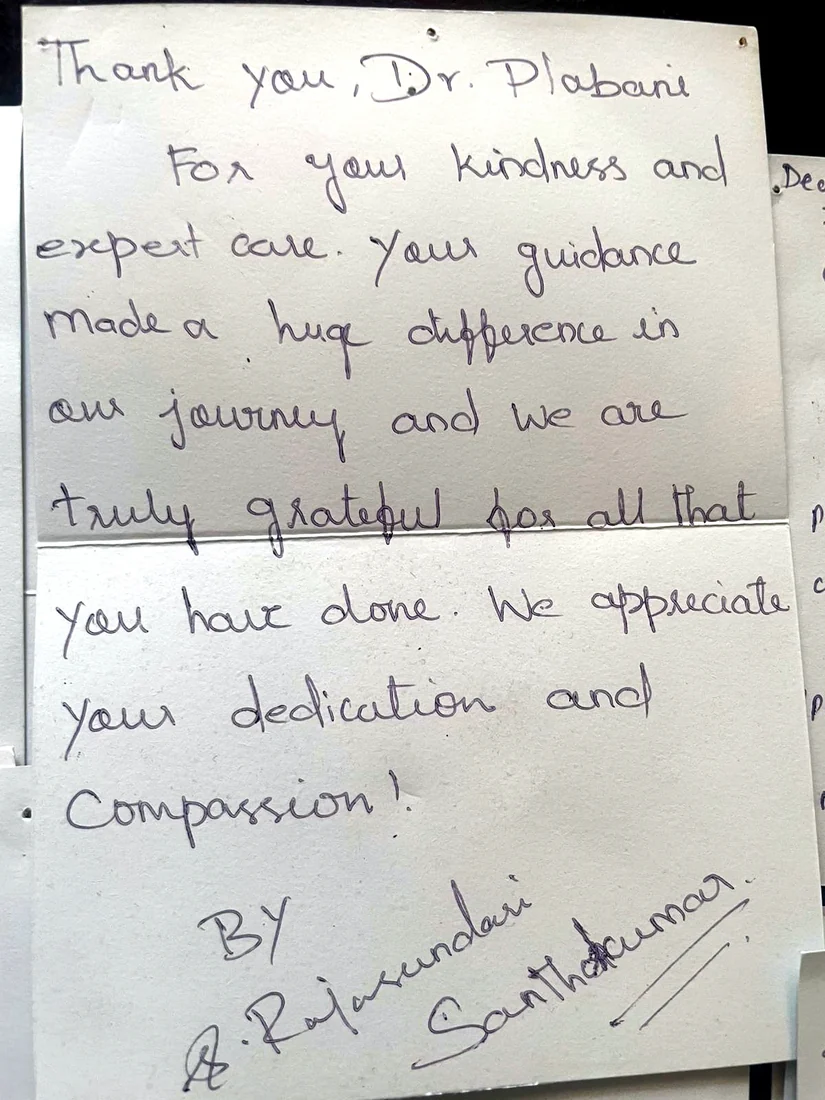 Thank you, Dr. Plabani
For your kindness and
expert care. Your guidance
made a huge difference in
our journey and we are
truly grateful for all that
you have done. We appreciate
your dedication and
Compassion!
BY
S. Rajasundari
Santhakumar.
Dea